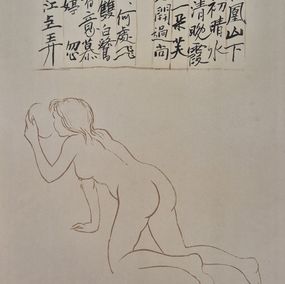 凰山下
初晴水
清晚霞
一朵芙
開過尚
何處飛
雙白鷺
有意慕
婷忽
江上弄